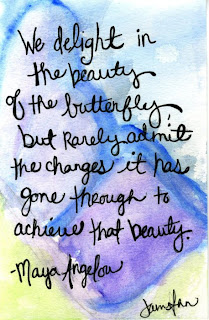 We delight in
the beauty
of the butterfly,
but Rarely admit
the changes it has
gone through to
achieve that beauty.
-Maya Angelou